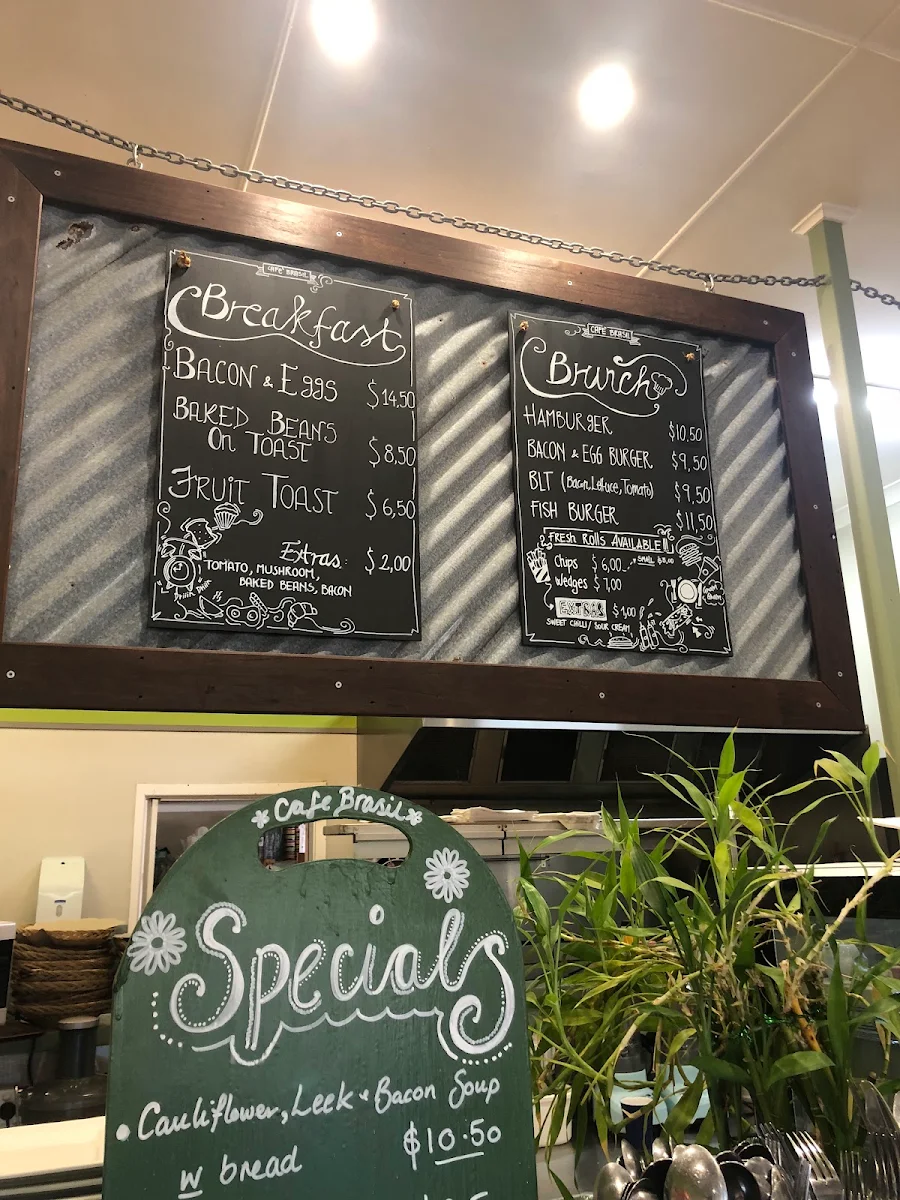 CAFÉ BRASIL
Breakfast
BACON & EGGS $14,50
BAKED BEANS
On TOAST $8,50
FRUIT TOAST $6,50
Extras: $2,00
TOMATO, MUSHROOM,
BAKED BEANS, BACON
CAFE BRASIL
Brunch
HAMBURGER $10,50
BACON & EGG BURGER $9,50
BLT (Bacon, Lettuce, Tomato) $9,50
FISH BURGER $11,50
FRESH ROLLS AVAILABLE!!
Chips $6,00
SMALL
Wedges $7,00
EXTRAS $1,00
SWEET CHILLI / SOUR CREAM
Cafe Brasil
Specials
• Cauliflower, Leek & Bacon Soup
w bread $10.50